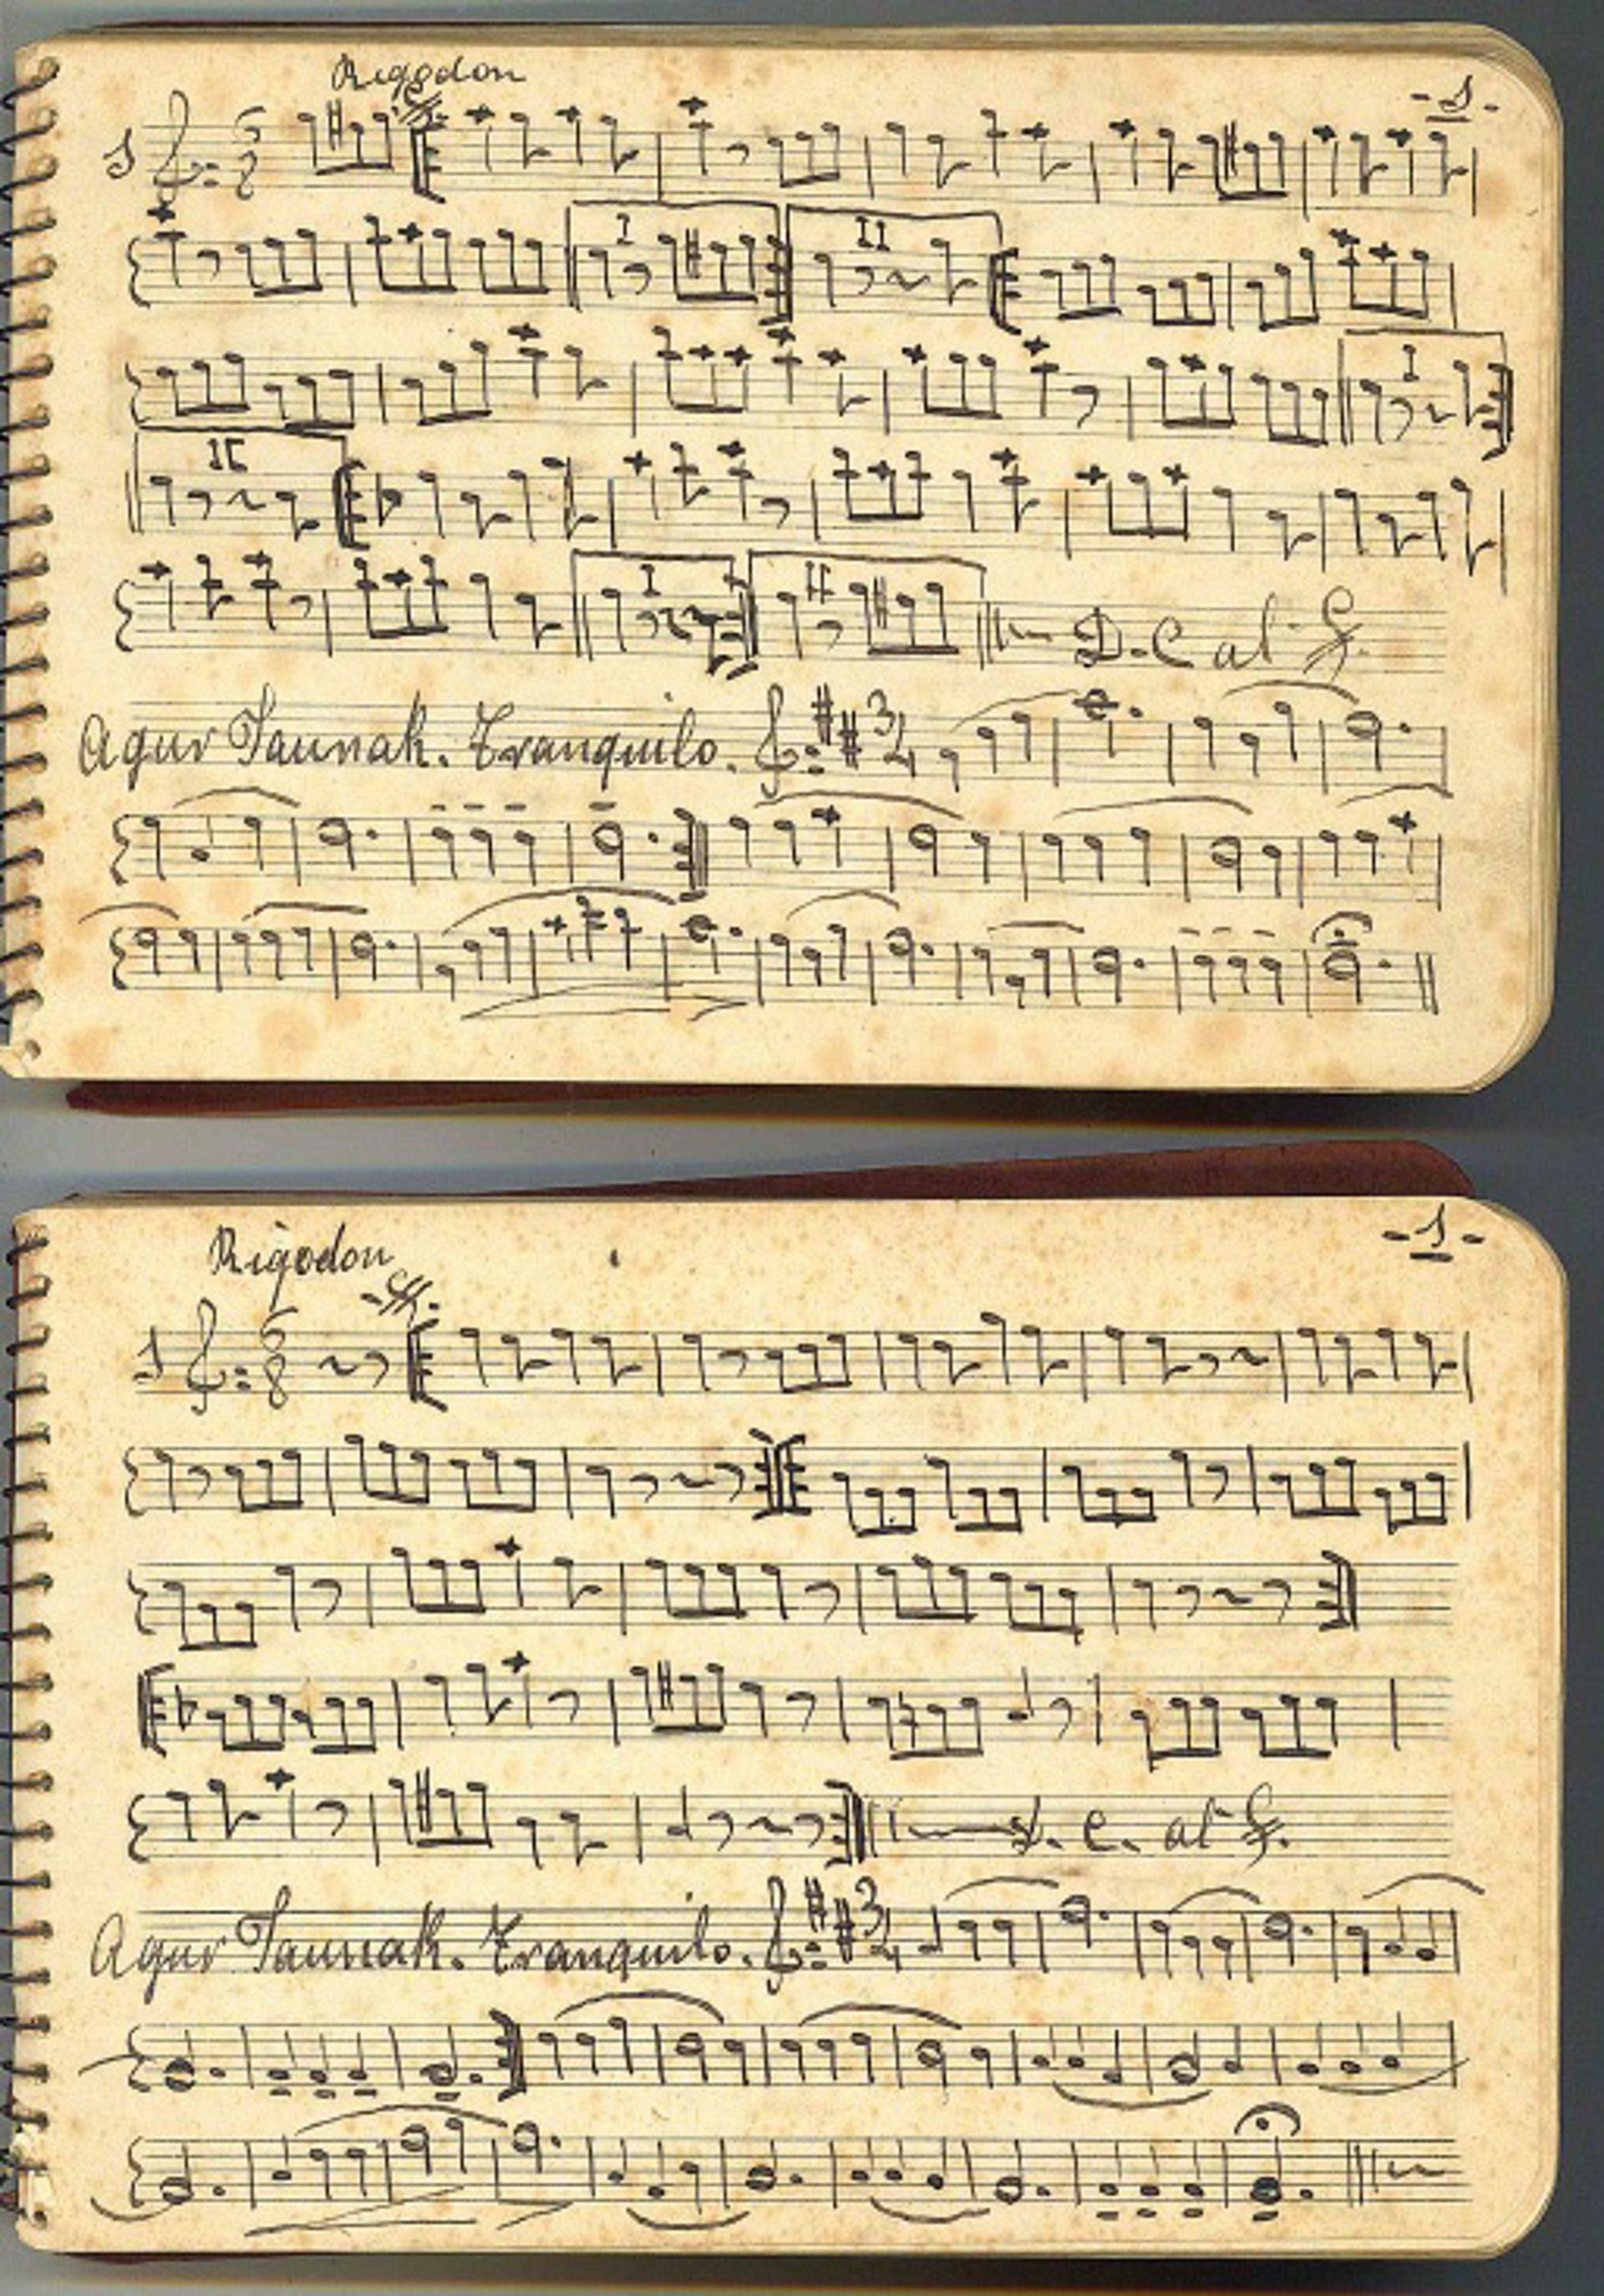 Rigodon
- 1 -
1 6 8
I II
I
II
I II D.C al S.
Agur Jaunak. Tranquilo. 3 4
Rigodon
- 1 -
1 6 8
D. C. al S.
Agur Jaunak. Tranquilo. 3 4